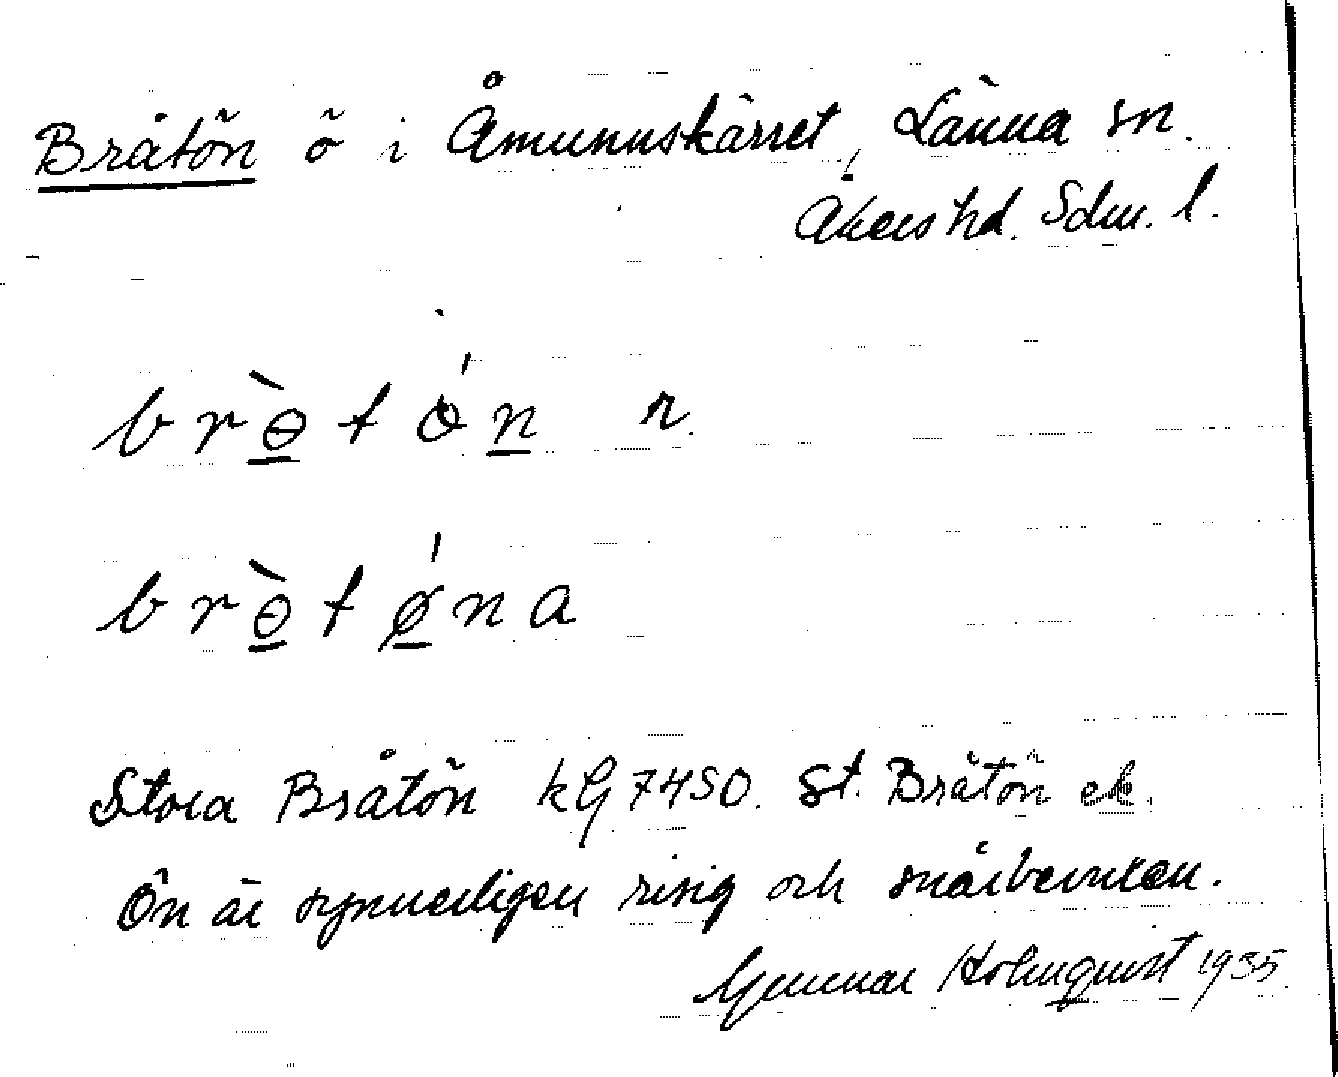 Bråtön ö i Åmunnskärret, Länna sn.
Åkers hd. Sdm. l.
brɵ̀tǿn n.
brɵ̀tǿna
Stora Bråtön kG 7450. St. Bråtön ek.
Ön är synnerligen risig och snårbevuxen.
Gunnar Holmquist 1935